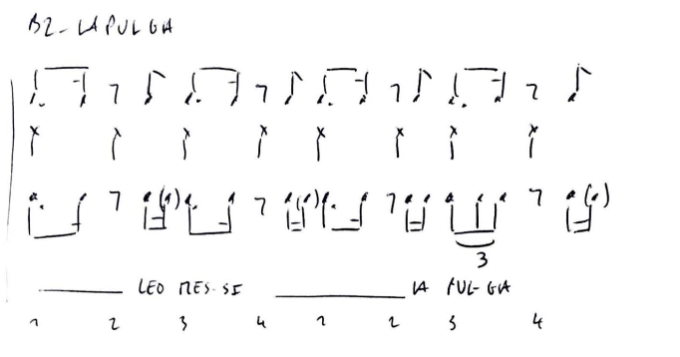 B2 - LA PULGA
3
LEO MES-SI LA PUL-GA
1 2 3 4 1 2 3 4